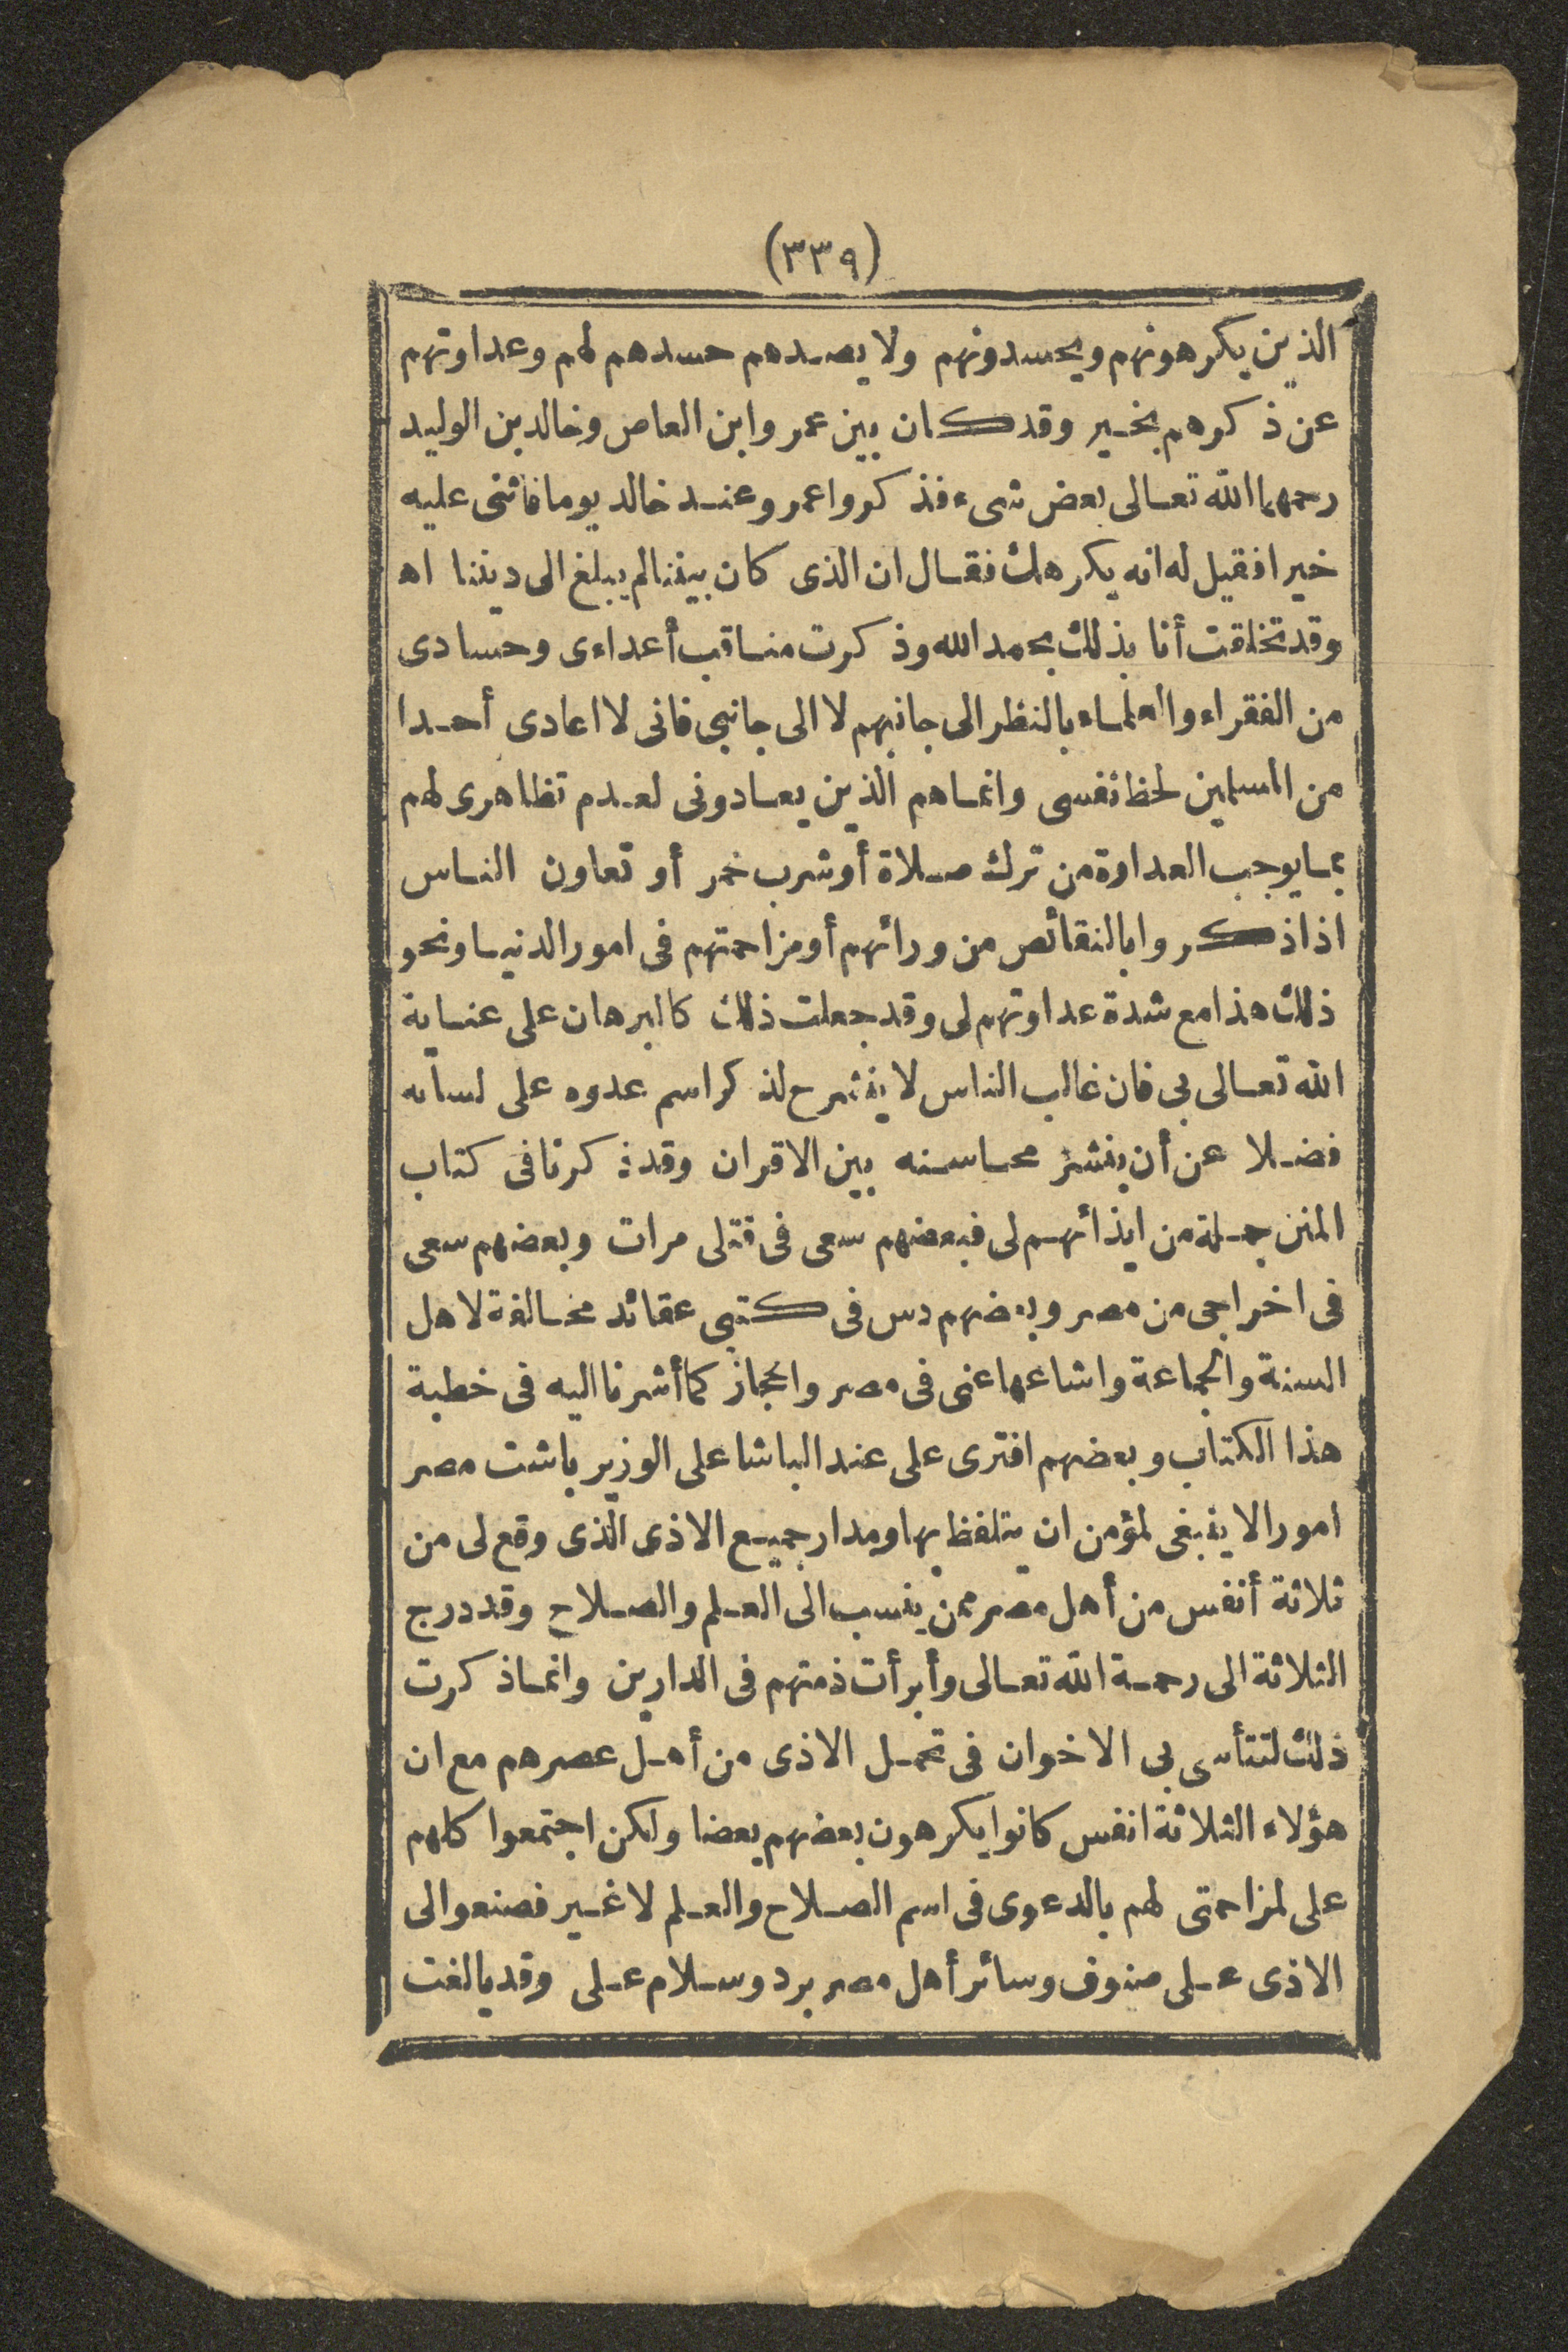 (٣٣٩)
الذين يكرهونهم ويحسدونهم ولا يصدهم حسدهم لهم وعداوتهم
عن ذكرهم بخير وقد كان بين عمرو ابن العاص وخالد بن الوليد
رحمهما الله تعالى بعض شىء فذكروا عمرو عند خالد يوما فاثنى عليه
خيرا فقيل له انه يكرهك فقال ان الذى كان بيننا لم يبلغ الى ديننا اه
وقد تخلقت أنا بذلك بحمد الله وذكرت مناقب أعداءى وحسادى
من الفقراء والعلماء بالنظر الى جانبهم لا الى جانبى فانى لا اعادى أحدا
من المسلمين لحظ نفسى وانماهم الذين يعادونى لعدم تظاهرى لهم
بما يوجب العداوة من ترك صلاة أو شرب خمر أو تعاون الناس
اذا ذكروا بالنقائص من ورائهم أو مزاحمتهم فى امور الدنيا ونحو
ذلك هذا مع شدة عداوتهم لى وقد جعلت ذلك كالبرهان على عناية
الله تعالى بى فان غالب الناس لا ينشرح لذكر اسم عدوه على لسانه
فضلا عن أن ينشر محاسنه بين الاقران وقد ذكرنا فى كتاب
المنن جملة من ايذائهم لى فبعضهم سعى فى قتلى مرات وبعضهم سعى
فى اخراجى من مصر وبعضهم دس فى كتبى عقائد مخالفة لاهل
السنة والجماعة واشاعها عنى فى مصر والحجاز كما أشرنا اليه فى خطبة
هذا الكتاب وبعضهم افترى على عند الباشا على الوزير باشت مصر
امورا لا ينبغى لمؤمن ان يتلفظ بها ومدار جميع الاذى الذى وقع لى من
ثلاثة أنفس من أهل مصر ممن ينسب الى العلم والصلاح وقد درج
الثلاثة الى رحمة الله تعالى وأبرأت ذمتهم فى الدارين وانما ذكرت
ذلك لتتأسى بى الاخوان فى تحمل الاذى من أهل عصرهم مع ان
هؤلاء الثلاثة انفس كانوا يكرهون بعضهم بعضا ولكن اجتمعوا كلهم
على لمزاحمتى لهم بالدعوى فى اسم الصلاح والعلم لا غير فصنعوا لى
الاذى على صنوف وسائر أهل مصر برد وسلام على وقد بالغت